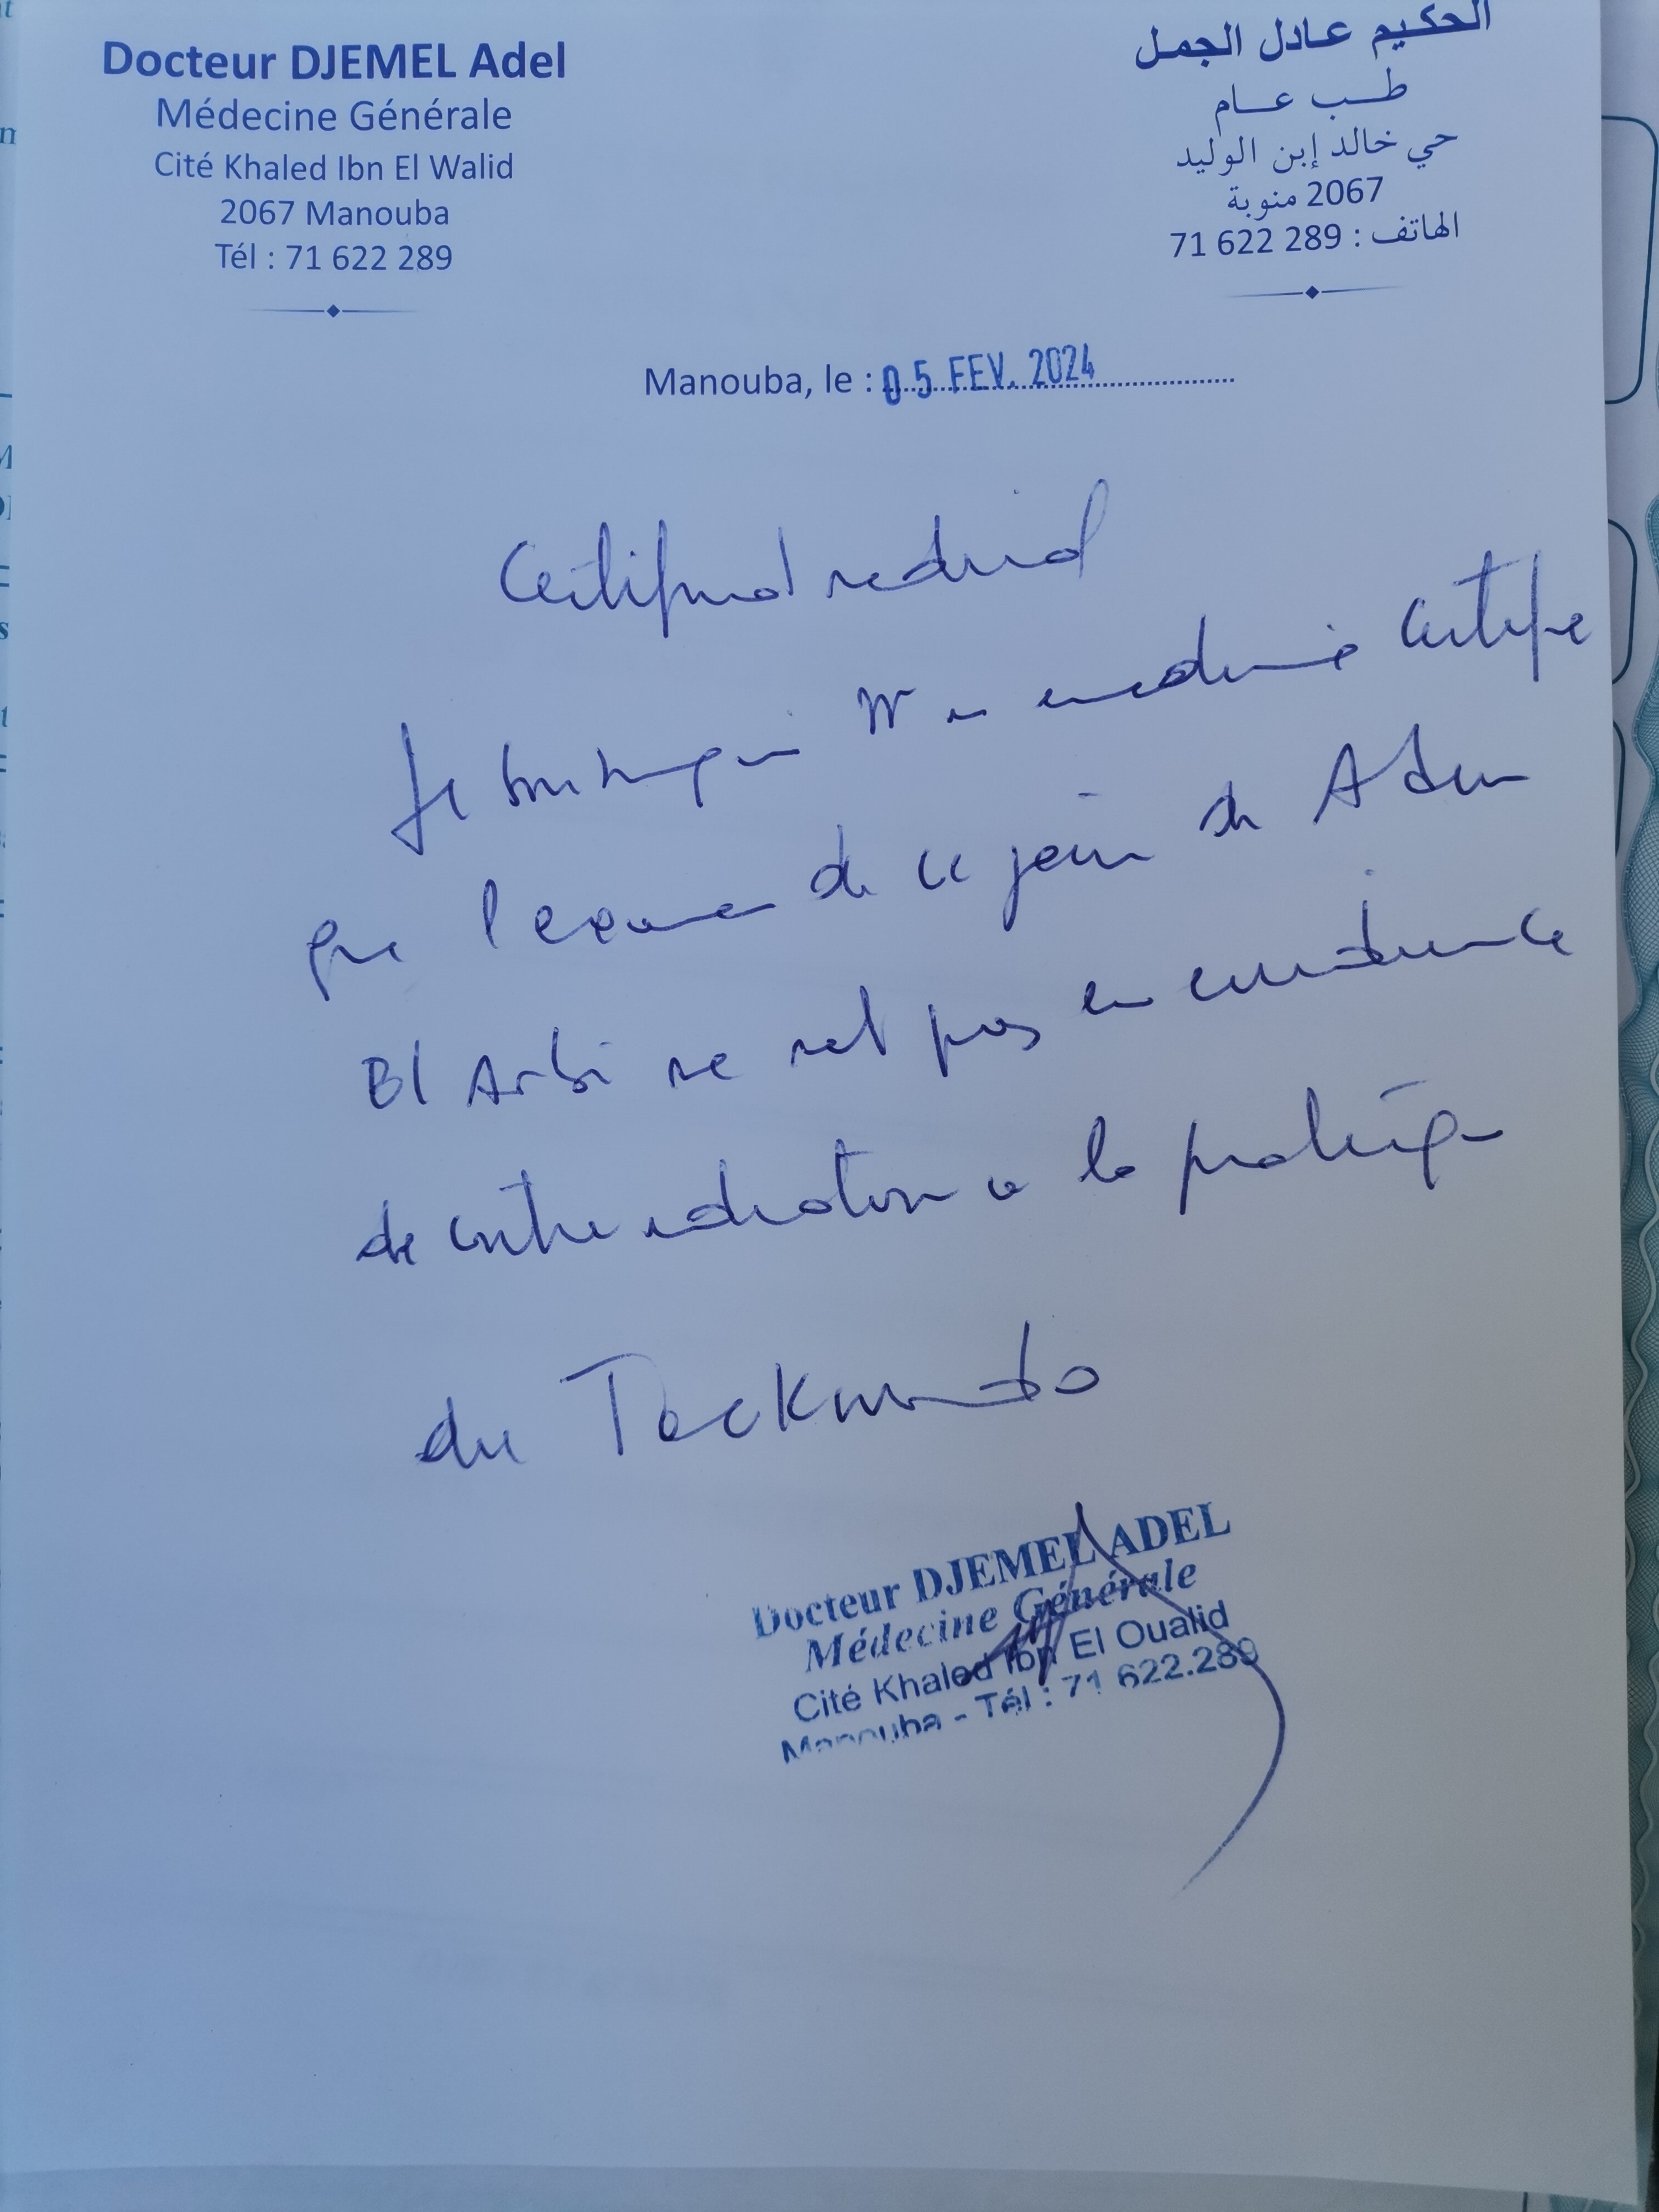 Docteur DJEMEL Adel
Médecine Générale
Cité Khaled Ibn El Walid
2067 Manouba
Tél : 71 622 289
الحكيم عادل الجمل
طب عام
حي خالد إبن الوليد
2067 منوبة
الهاتف : 71 622 289
Manouba, le : 05 FEV. 2024
Certificat médical
Je soussigné Dr en médecine certifie
que l'examen de ce jour de Adem
El Arbi ne met pas en évidence
de contre indication à la pratique
du Taekwondo
Docteur DJEMEL ADEL
Médecine Générale
Cité Khaled Ibn El Oualid
Manouba - Tél : 71 622.289